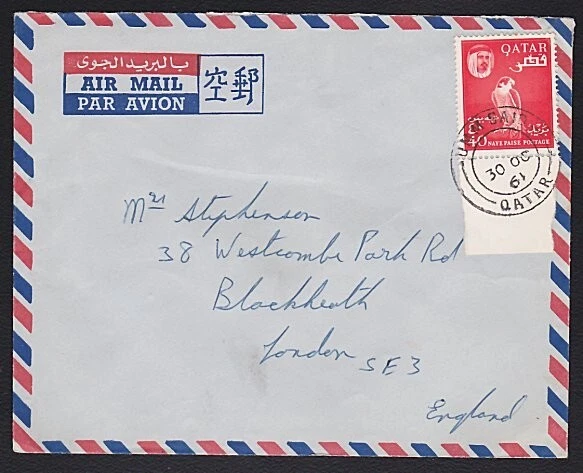 بالبريد الجوى
AIR MAIL
PAR AVION
空郵
QATAR
قطر
40 NAYE PAISE POSTAGE
30 OC
61
QATAR
Mrs Stephenson
38 Westcombe Park Rd
Blackheath
London SE3
England